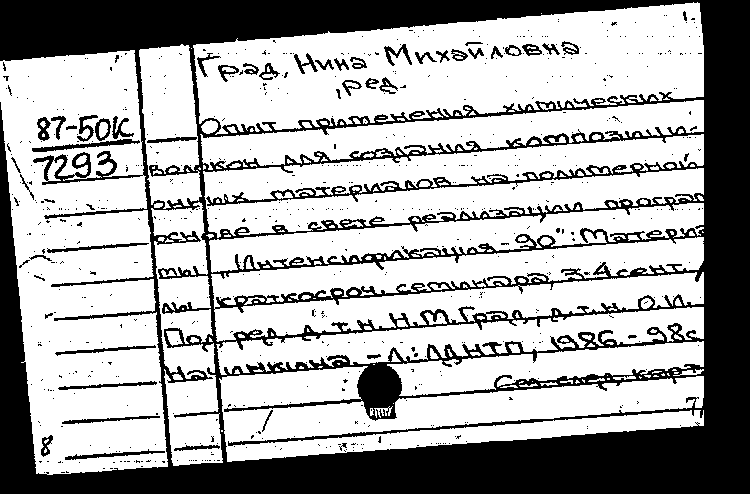 Град, Нина Михайловна
, ред.
87-50К
7293
Опыт применения химических
волокон для создания композици-
онных материалов на полимерной
основе в свете реализации програм
мы „Интенсификация-90": Материа
лы краткосроч. семинара, 3-4 сент. /
Под ред. д.т.н. Н.М.Град, д.т.н. О.И.
Начинкина. - Л.: ЛДНТП, 1986. - 98с
См. след. карт.
8
7/